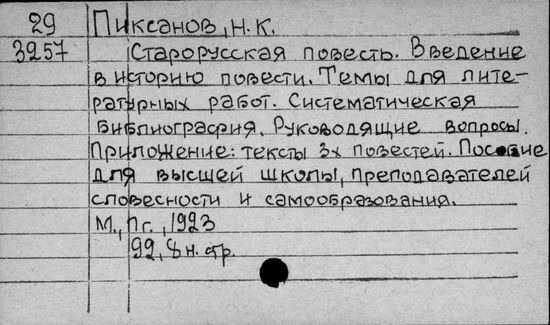 29 Пиксанов, Н.К.
3257 Старорусская повесть. Введение
в историю повести. Темы для лите-
ратурных работ. Систематическая
библиография. Руководящие вопросы.
Приложение: тексты 3х повестей. Пособие
для высшей школы, преподавателей
словесности и самообразования.
М., Пг., 1923
92, 8 н. стр.